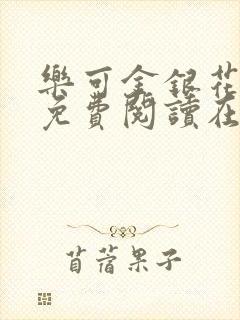 樂可金銀花
免費閱讀在
苜蓿果子